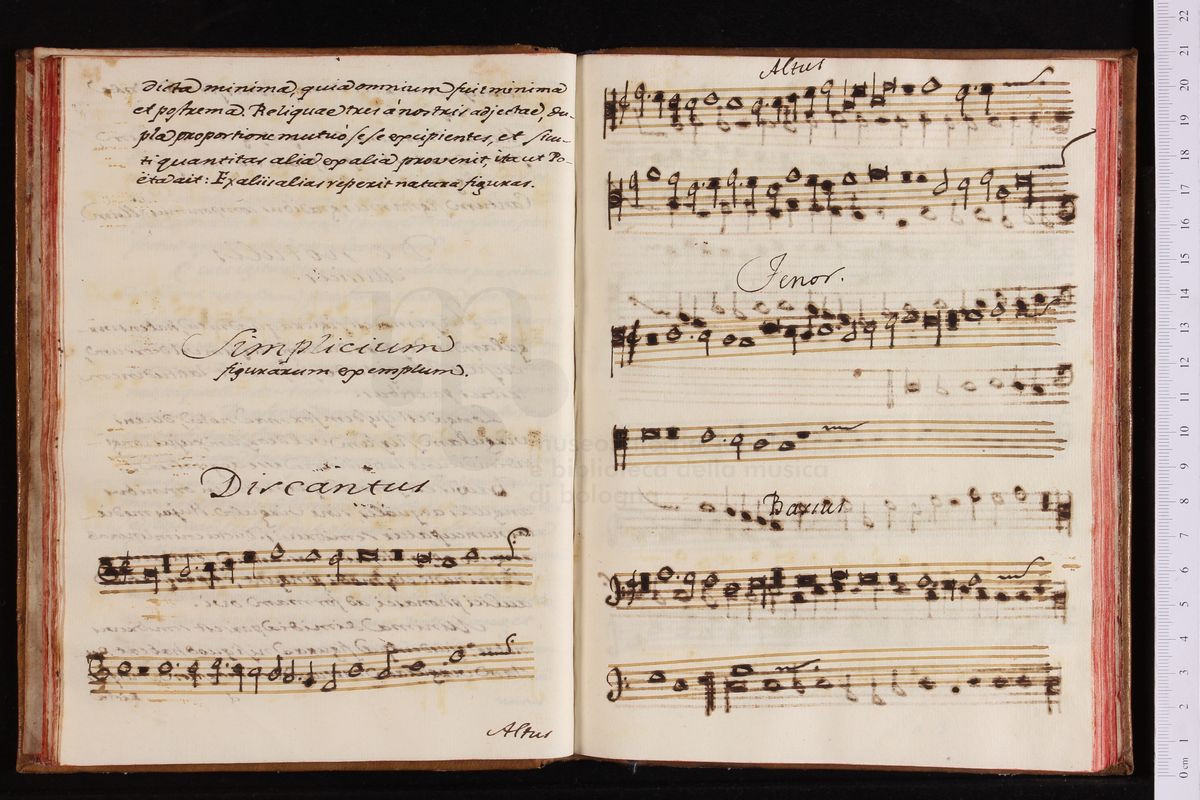 dicta minima, quia omnium fuit minima
et postrema. Reliquae tres á nostris adjectae, du-
pla proportione mutuo se se excipientes, et sicu-
ti quantitas alia ex alia provenit, ita ut Po-
ëta ait: Ex aliis alias reperit natura figuras.
Simplicium
figurarum exemplum.
Discantus
Altus
Altus
Tenor.
Bassus
museo
e biblioteca della musica
di bologna
22
21
20
19
18
17
16
15
14
13
12
11
10
9
8
7
6
5
4
3
2
1
0 cm